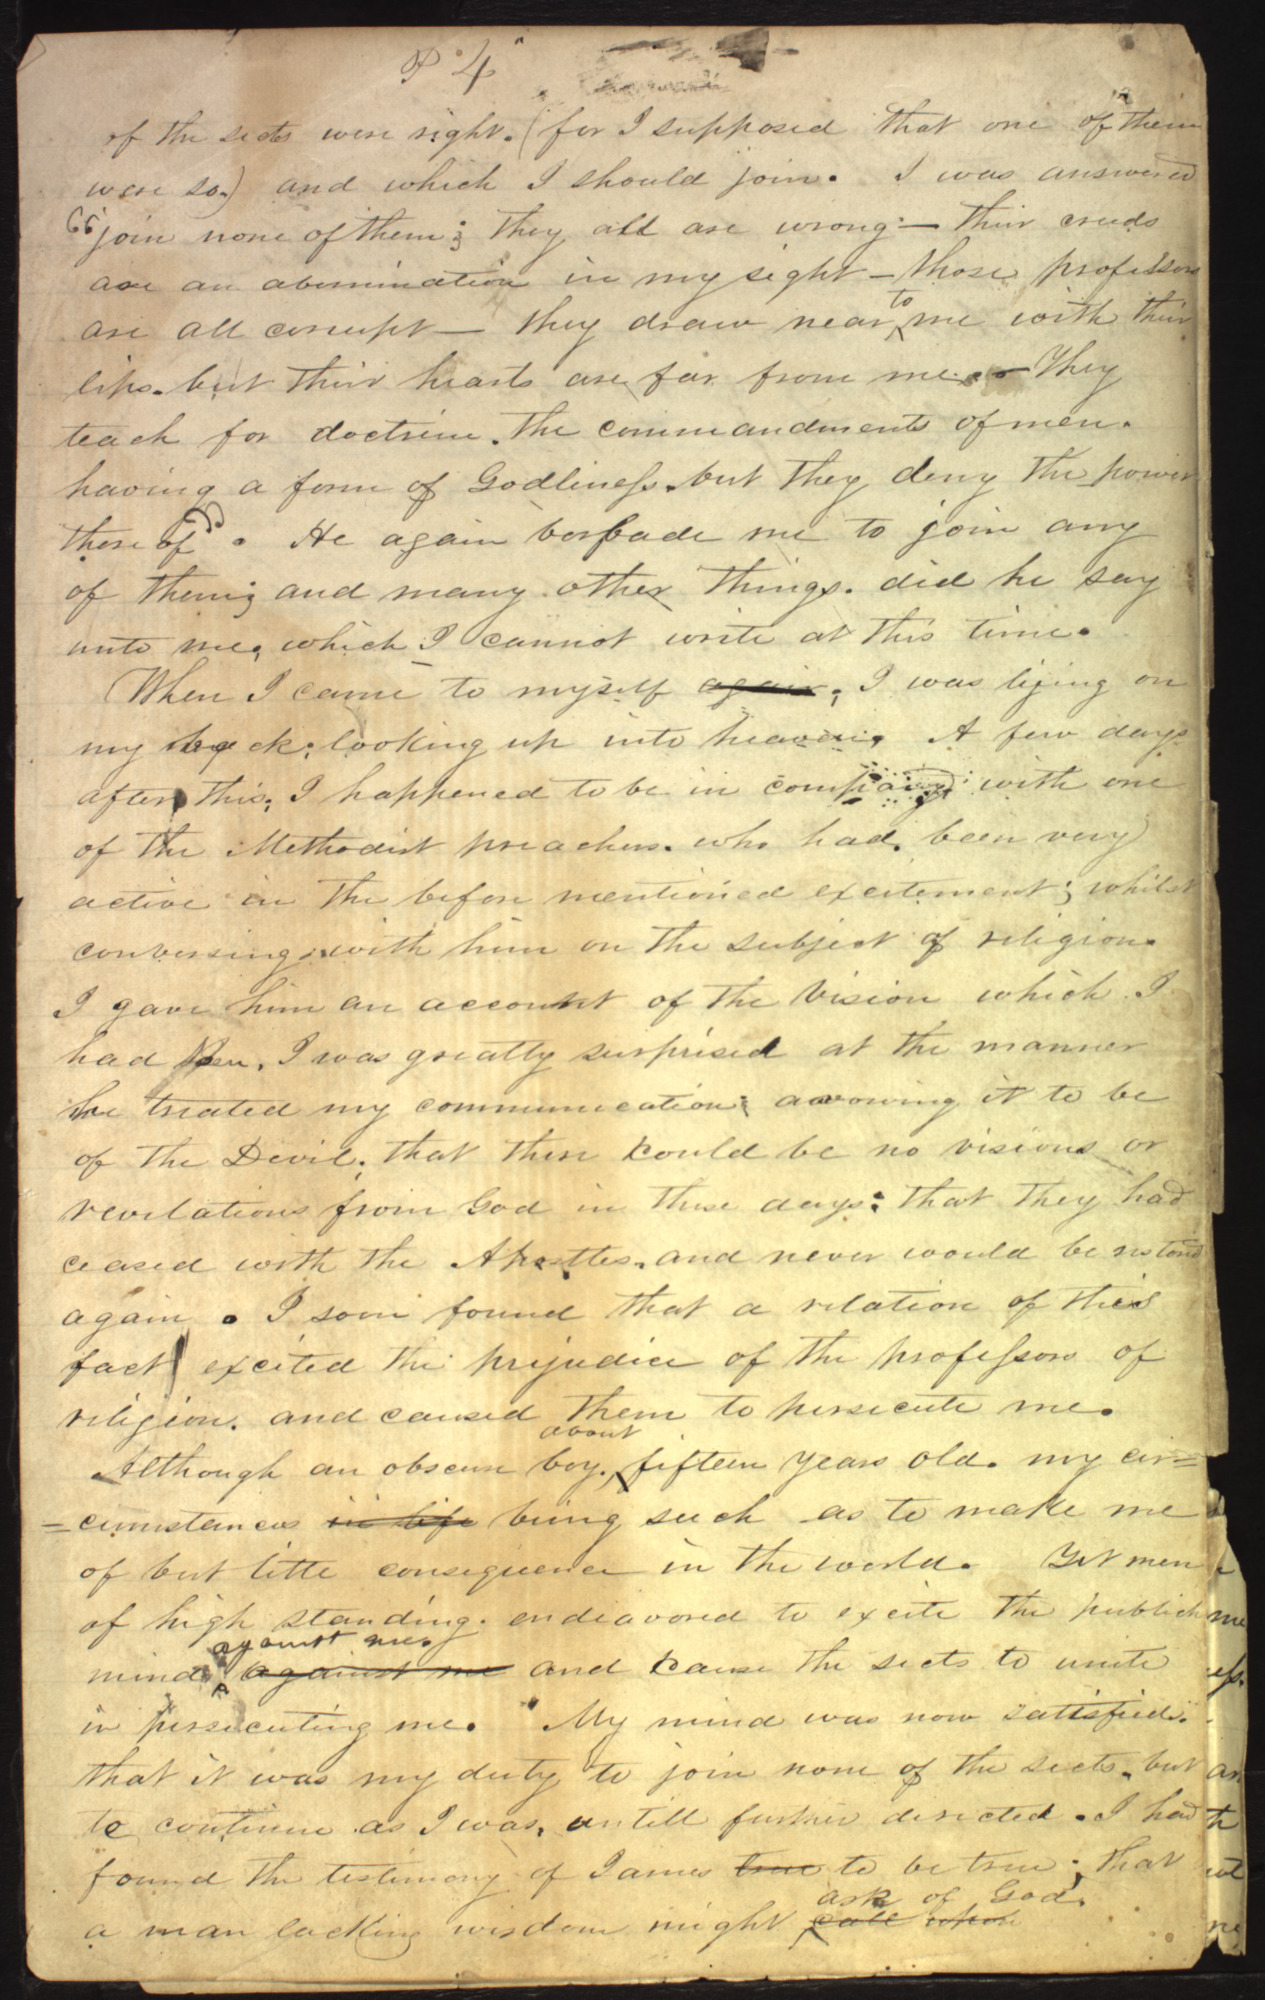 P 4
of the sects were right. (for I supposed that one of them
were so.) and which I should join. I was answered
"join none of them; they all are wrong;— their creeds
are an abomination in my sight — those professors
are all corrupt — they draw near to me with their
lips. but their hearts are far from me. — They
teach for doctrine. the commandments of men.
having a form of Godliness. but they deny the power
thereof". He again forbade me to join any
of them; and many other things. did he say
unto me, which I cannot write at this time.
When I came to myself again, I was lying on
my back; looking up into heaven. A few days
after this, I happened to be in company with one
of the Methodist preachers. who had, been very
active in the before mentioned excitement; whilst
conversing with him on the subject of religion.
I gave him an account of the Vision which I
had seen. I was greatly surprised at the manner
he treated my communication; avowing it to be
of the Devil. that there could be no visions or
revelations from God in these days: that they had
ceased with the Apostles. and never would be restored
again. I soon found that a relation of this
fact excited the prejudice of the professors of
religion. and caused them to persecute me.
Although an obscure boy, about fifteen years old. my cir=
=cumstances in life being such as to make me
of but little consequence in the world. Yet men
of high standing. endeavored to excite the publick
mind, against me. against me and cause the sects to unite
in persecuting me. My mind was now satisfied.
that it was my duty to join none of the sects. but
to continue as I was, untill further directed. I had
found the testimony of James true to be true; that
a man lacking wisdom might call upon ask of God.